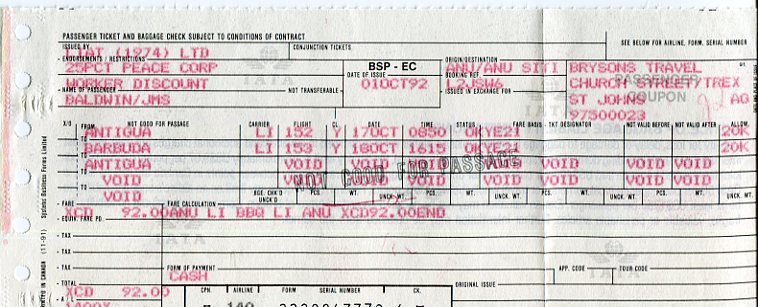 PASSENGER TICKET AND BAGGAGE CHECK SUBJECT TO CONDITIONS OF CONTRACT
SEE BELOW FOR AIRLINE, FORM, SERIAL NUMBER
ISSUED BY CONJUNCTION TICKETS
LIAT (1974) LTD
ENDORSEMENTS / RESTRICTIONS BSP - EC ORIGIN/DESTINATION
25PCT PEACE CORP ANU/ANU SITI BRYSONS TRAVEL
DATE OF ISSUE BOOKING REF.
WORKER DISCOUNT 01OCT92 L2JSW6 CHURCH STREET/TREX
NAME OF PASSENGER NOT TRANSFERABLE ISSUED IN EXCHANGE FOR
PASSENGER COUPON
BALDWIN/JMS ST JOHNS AG
97500023
X/O NOT GOOD FOR PASSAGE CARRIER FLIGHT CL DATE TIME STATUS FARE BASIS TKT DESIGNATOR NOT VALID BEFORE NOT VALID AFTER ALLOW
FROM ANTIGUA LI 152 Y 17OCT 0850 OKYE21 20K
TO BARBUDA LI 153 Y 18OCT 1615 OKYE21 20K
TO ANTIGUA VOID VOID VOID VOID VOID VOID
TO VOID VOID VOID VOID VOID VOID VOID
NOT GOOD FOR PASSAGE
VOID BGE. CHK'D UNCK'D PCS. WT. UNCK. WT. PCS. WT. UNCK. WT. PCS. WT. UNCK. WT.
FARE FARE CALCULATION
XCD 92.00 ANU LI BBQ LI ANU XCD92.00END
EQUIV. FARE PD.
IATA
TAX
TAX
TAX FORM OF PAYMENT APP. CODE TOUR CODE
CASH
TOTAL CPN. AIRLINE FORM SERIAL NUMBER CK. ORIGINAL ISSUE
XCD 92.00
Systems Business Forms Limited
(11-91)
PRINTED IN CANADA